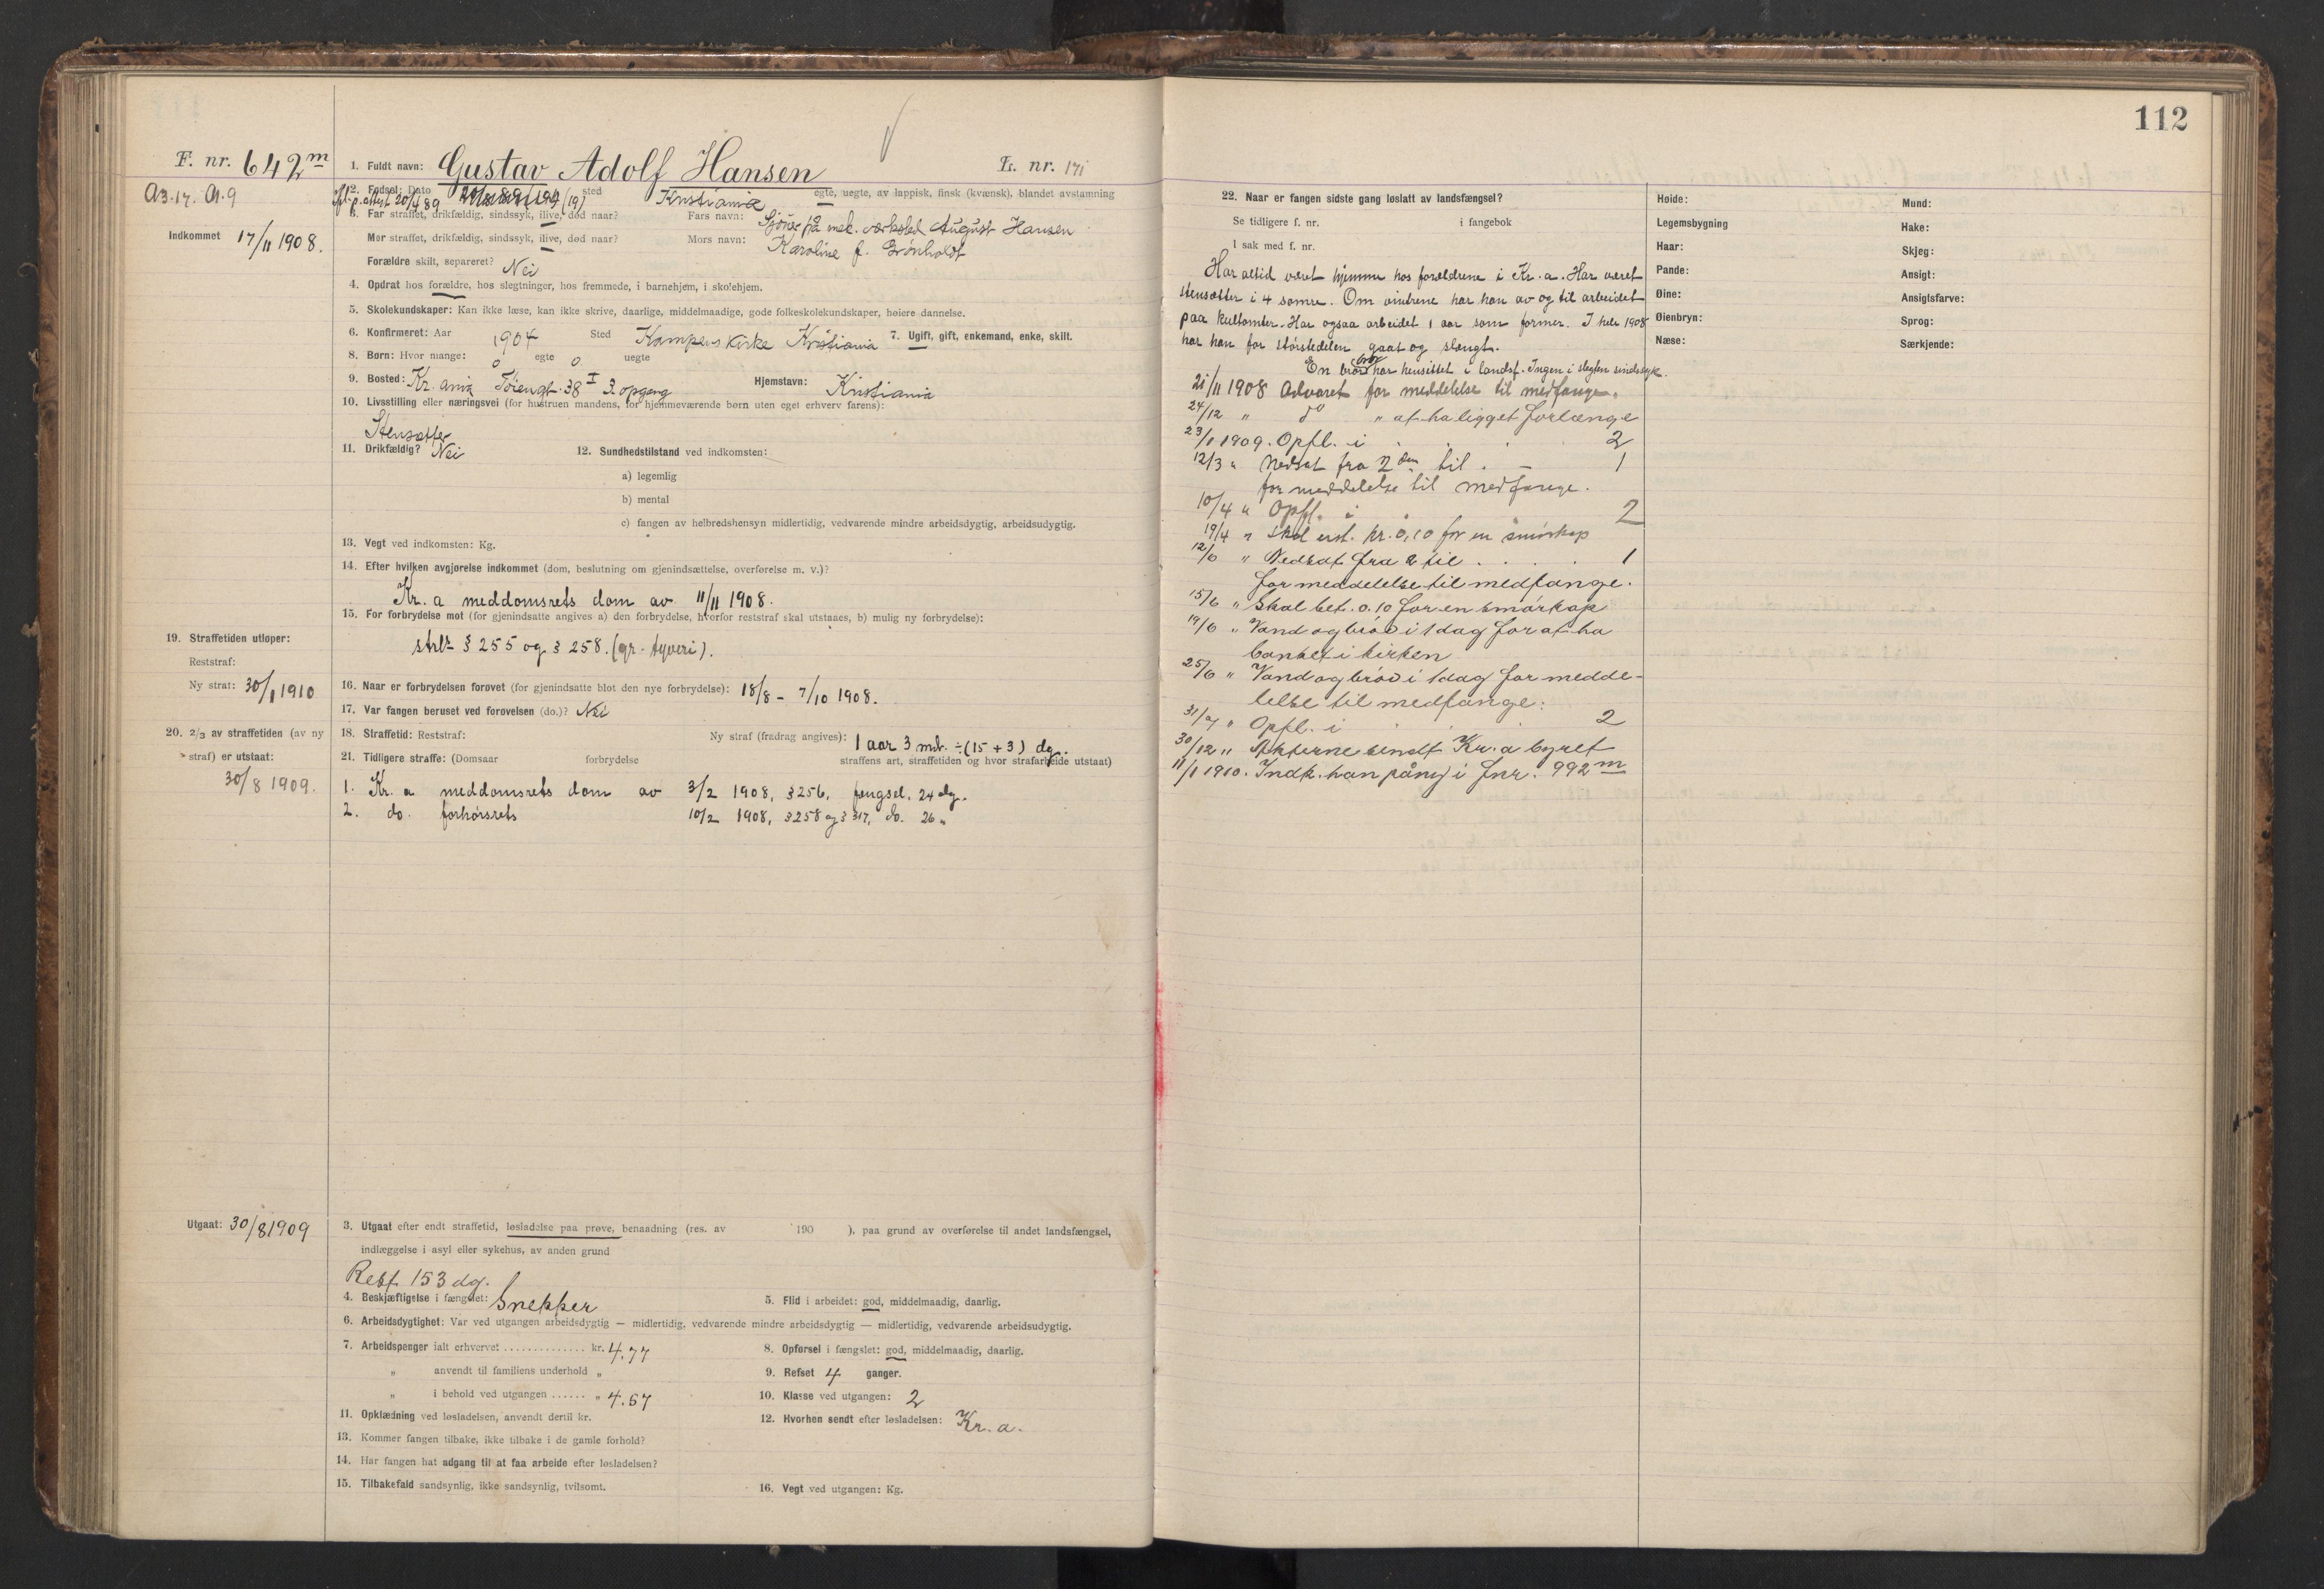 112
F. nr. 642 m
1. Fuldt navn: Gustav Adolf Hansen
L. nr. 171
A3.17. A.9
2. Fødsel: Dato
p. attest 20/4 89 (19) sted Kristiania egte, uegte, av lappisk, finsk (kvænsk), blandet avstamning
3. Far straffet, drikfældig, sindssyk, ilive, død naar? Fars navn: på mek. værksted August Hansen
Indkommet 17/11 1908.
Mor straffet, drikfældig, sindssyk, ilive, død naar? Mors navn: Karoline f. Grønholdt
Forældre skilt, separeret? Nei
4. Opdrat hos forældre, hos slegtninger, hos fremmede, i barnehjem, i skolehjem.
5. Skolekundskaper: Kan ikke læse, kan ikke skrive, daarlige, middelmaadige, gode folkeskolekundskaper, høiere dannelse.
6. Konfirmeret: Aar 1904 Sted Kampens kirke Kristiania 7. Ugift, gift, enkemand, enke, skilt.
8. Børn: Hvor mange: 0 egte 0 uegte
9. Bosted: Kr.ania Tøiengt. 38 I 3. opgang Hjemstavn: Kristiania
10. Livsstilling eller næringsvei (for hustruen mandens, for hjemmeværende børn uten eget erhverv farens):
Stensætter
11. Drikfældig? Nei 12. Sundhedstilstand ved indkomsten:
a) legemlig
b) mental
c) fangen av helbredshensyn midlertidig, vedvarende mindre arbeidsdygtig, arbeidsudygtig.
13. Vegt ved indkomsten: Kg.
14. Efter hvilken avgjørelse indkommet (dom, beslutning om gjenindsættelse, overførelse m. v.)?
Kr. a meddomsrets dom av 11/11 1908.
15. For forbrydelse mot (for gjenindsatte angives a) den forbrydelse, hvorfor reststraf skal utstaaes, b) mulig ny forbrydelse):
19. Straffetiden utløper:
strl § 255 og § 258. (gr. tyveri).
Reststraf:
Ny straf: 30/1 1910
16. Naar er forbrydelsen forøvet (for gjenindsatte blot den nye forbrydelse): 18/8 - 7/10 1908.
17. Var fangen beruset ved forøvelsen (do.)? Nei
20. 2/3 av straffetiden (av ny
straf) er utstaat:
30/8 1909.
18. Straffetid: Reststraf: Ny straf (fradrag angives): 1 aar 3 md. ÷ (15 + 3) dg.
21. Tidligere straffe: (Domsaar forbrydelse straffens art, straffetiden og hvor strafarbeide utstaat)
1. Kr. a meddomsrets dom av 3/2 1908, § 256, fengsel, 24 dg.
2. do. forhørsrets 10/2 1908, § 258 og § 317, do. 26 "
Utgaat: 30/8 1909
3. Utgaat efter endt straffetid, løsladelse paa prøve, benaadning (res. av 190 ), paa grund av overførelse til andet landsfængsel,
indlæggelse i asyl eller sykehus, av anden grund
Rest. 153 dg.
4. Beskjæftigelse i fængslet: Snekker 5. Flid i arbeidet: god, middelmaadig, daarlig.
6. Arbeidsdygtighet: Var ved utgangen arbeidsdygtig — midlertidig, vedvarende mindre arbeidsdygtig — midlertidig, vedvarende arbeidsudygtig.
7. Arbeidspenger ialt erhvervet kr. 4.77 8. Opførsel i fængslet: god, middelmaadig, daarlig.
" anvendt til familiens underhold " 9. Refset 4 ganger.
" i behold ved utgangen " 4.57 10. Klasse ved utgangen: 2
11. Opklædning ved løsladelsen, anvendt dertil kr. 12. Hvorhen sendt efter løsladelsen: Kr. a.
13. Kommer fangen tilbake, ikke tilbake i de gamle forhold?
14. Har fangen hat adgang til at faa arbeide efter løsladelsen?
15. Tilbakefald sandsynlig, ikke sandsynlig, tvilsomt. 16. Vegt ved utgangen: Kg.
22. Naar er fangen sidste gang løslatt av landsfængsel?
Se tidligere f. nr. i fangebok
I sak med f. nr.
Har altid været hjemme hos forældrene i Kr. a. Har været
stensætter i 4 somre. Om vintrene har han av og til arbeidet
paa kultomter. Har ogsaa arbeidet 1 aar som former. I hele 1908
har han for størstedelen gaat og slængt.
En bror har hensittet i landsf. Ingen i slegten sindssyk.
21/11 1908 Advaret for meddelelse til medfange.
24/12 " do " at ha ligget forlænge
23/1 1909. Opfl. i 2
12/3 " Nedsat fra 2den til 1
for meddelelse til medfange.
10/4 " Opfl. i 2
19/4 " Skal erst. kr. 0,10 for en smörkop
12/6 " Nedsat fra 2 til 1
for meddelelse til medfange.
15/6 " Skal bet. 0.10 for en smörkop
19/6 " Vand og bröd i 1 dag for at ha
banket i kirken
25/6 " Vand og bröd i 1 dag for medde-
lelse til medfange.
31/7 " Opfl. i 2
30/12 " Akterne sendt Kr. a byret
11/1 1910. Indk. han påny i fnr. 992 m
Høide:
Legemsbygning
Haar:
Pande:
Øine:
Øienbryn:
Næse:
Mund:
Hake:
Skjeg:
Ansigt:
Ansigtsfarve:
Sprog:
Særkjende: